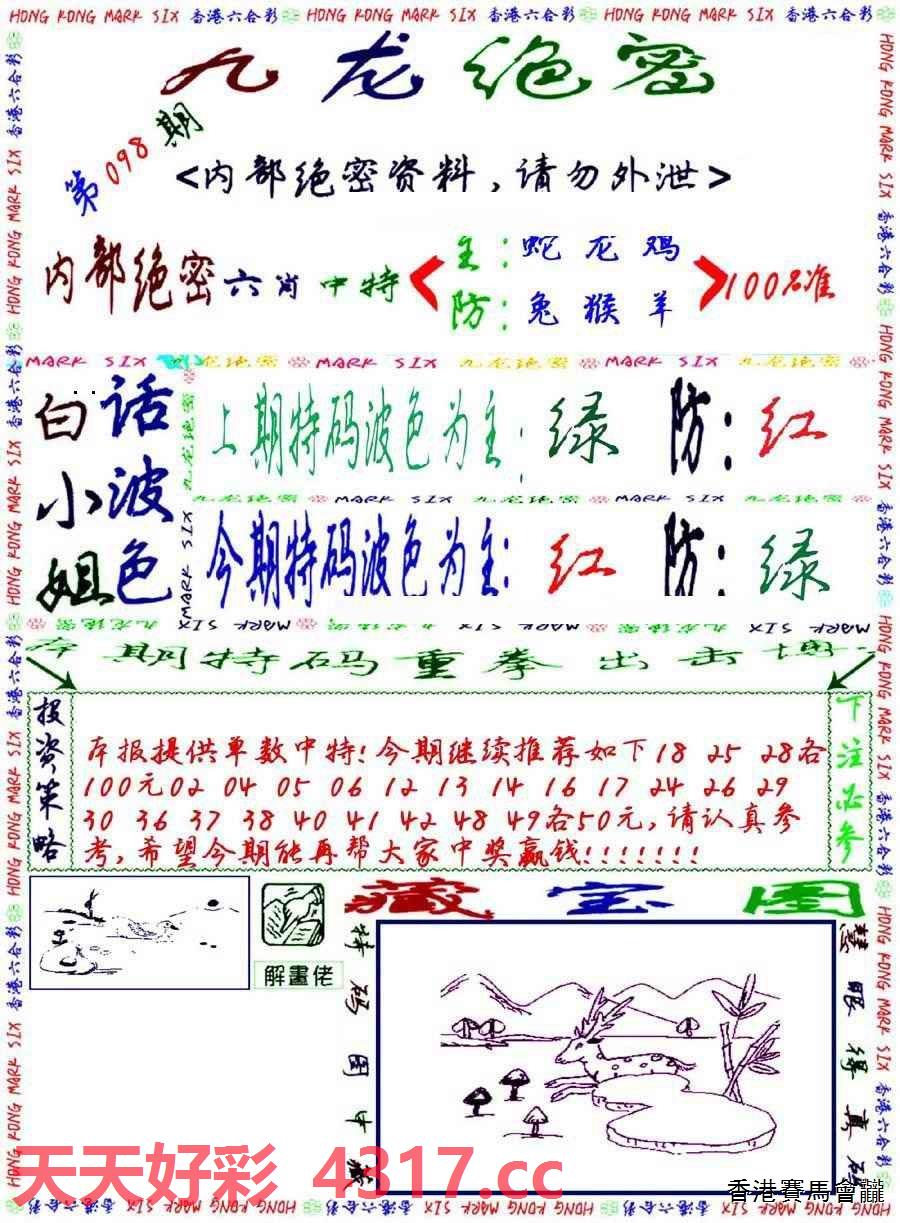 HONG KONG MARK SIX 香港六合彩 HONG KONG MARK SIX 香港六合彩 HONG KONG MARK SIX 香港六合彩
九龙绝密
第098期
<内部绝密资料,请勿外泄>
内部绝密六肖中特
主:蛇龙鸡
防:兔猴羊
100%准
MARK SIX 九龙绝密 MARK SIX 九龙绝密 MARK SIX 九龙绝密
白话
小波
姐色
上期特码波色为主:绿 防:红
九龙绝密 MARK SIX 九龙绝密 MARK SIX 九龙绝密
今期特码波色为主:红 防:绿
本期特码重拳出击
投资策略
本报提供单数中特!今期继续推荐如下18 25 28各
100元02 04 05 06 12 13 14 16 17 24 26 29
30 36 37 38 40 41 42 48 49各50元,请认真参
考,希望今期能再帮大家中奖赢钱!!!!!!!
下注必参
藏宝图
解畫佬
特码图中
慧眼得真
天天好彩 4317.cc
香港賽馬會